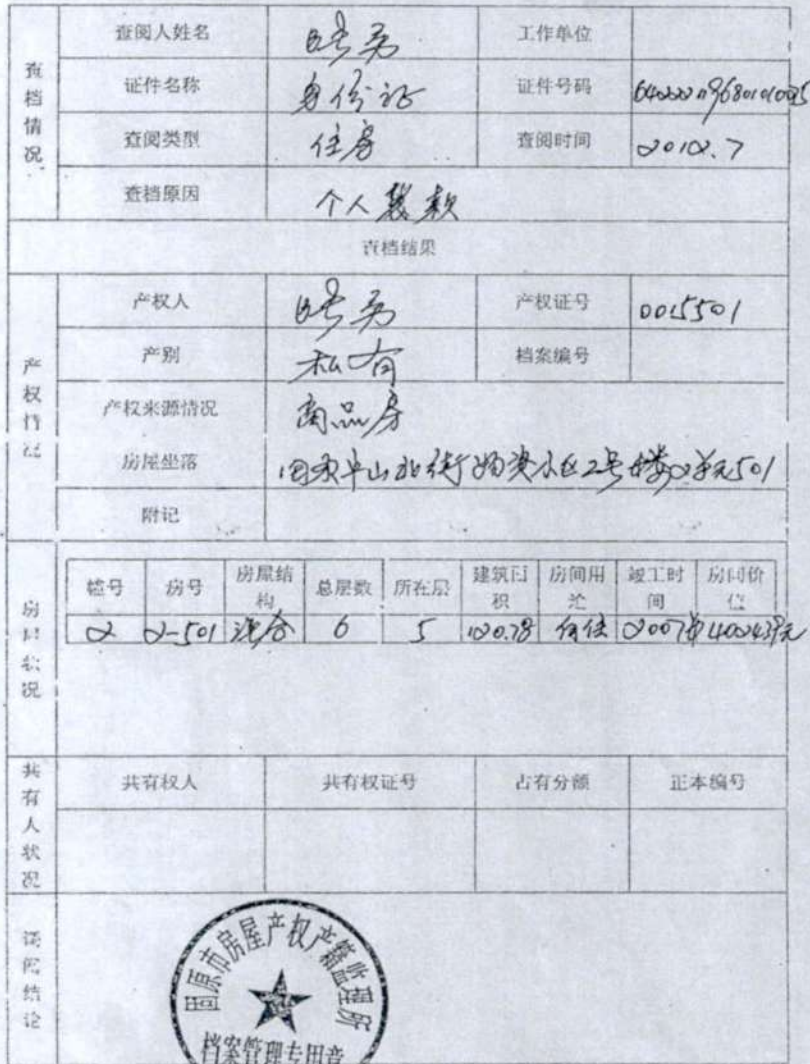 查档情况
查阅人姓名 工作单位
证件名称 身份证 证件号码
查阅类型 住房 查阅时间 2012.7
查档原因 个人贷款
查档结果
产权情况
产权人 产权证号 0015501
产别 私有 档案编号
产权来源情况 商品房
房屋坐落 山北街物资小区2号楼2单元501
附记
房间状况
幢号 房号 房屋结构 总层数 所在层 建筑面积 房间用途 竣工时间 房间价值
2 2-501 混合 6 5 120.78 2007年 402439元
共有人状况
共有权人 共有权证号 占有分额 正本编号
查阅结论
固原市房屋产权产籍监理所
档案管理专用章